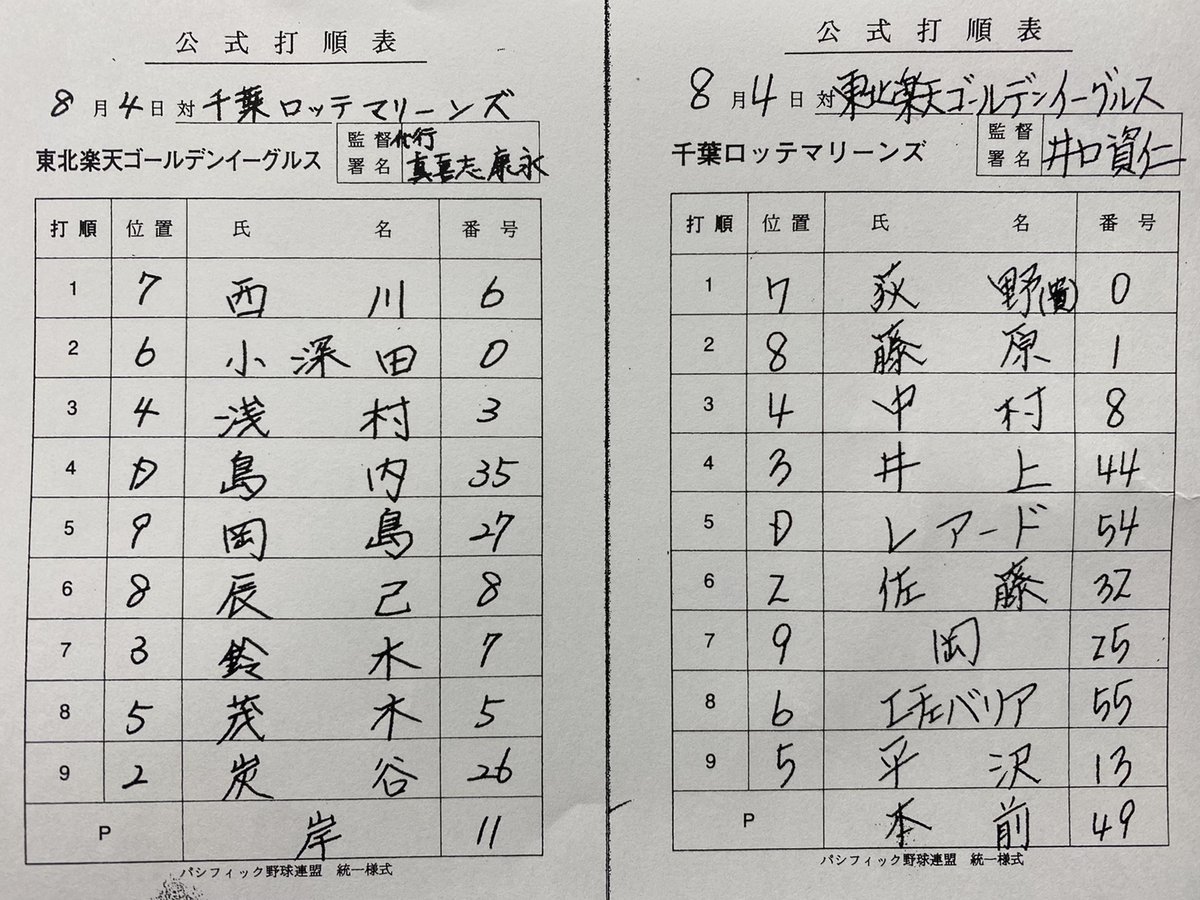 公式打順表
8月4日対千葉ロッテマリーンズ
東北楽天ゴールデンイーグルス
監督代行
署名 真喜志康永
打順 位置 氏名 番号
1 7 西川 6
2 6 小深田 0
3 4 浅村 3
4 D 島内 35
5 9 岡島 27
6 8 辰己 8
7 3 鈴木 7
8 5 茂木 5
9 2 炭谷 26
P 岸 11
パシフィック野球連盟 統一様式
公式打順表
8月4日対東北楽天ゴールデンイーグルス
千葉ロッテマリーンズ
監督
署名 井口資仁
打順 位置 氏名 番号
1 7 荻野(貴) 0
2 8 藤原 1
3 4 中村 8
4 3 井上 44
5 D レアード 54
6 2 佐藤 32
7 9 岡 25
8 6 エチェバリア 55
9 5 平沢 13
P 本前 49
パシフィック野球連盟 統一様式